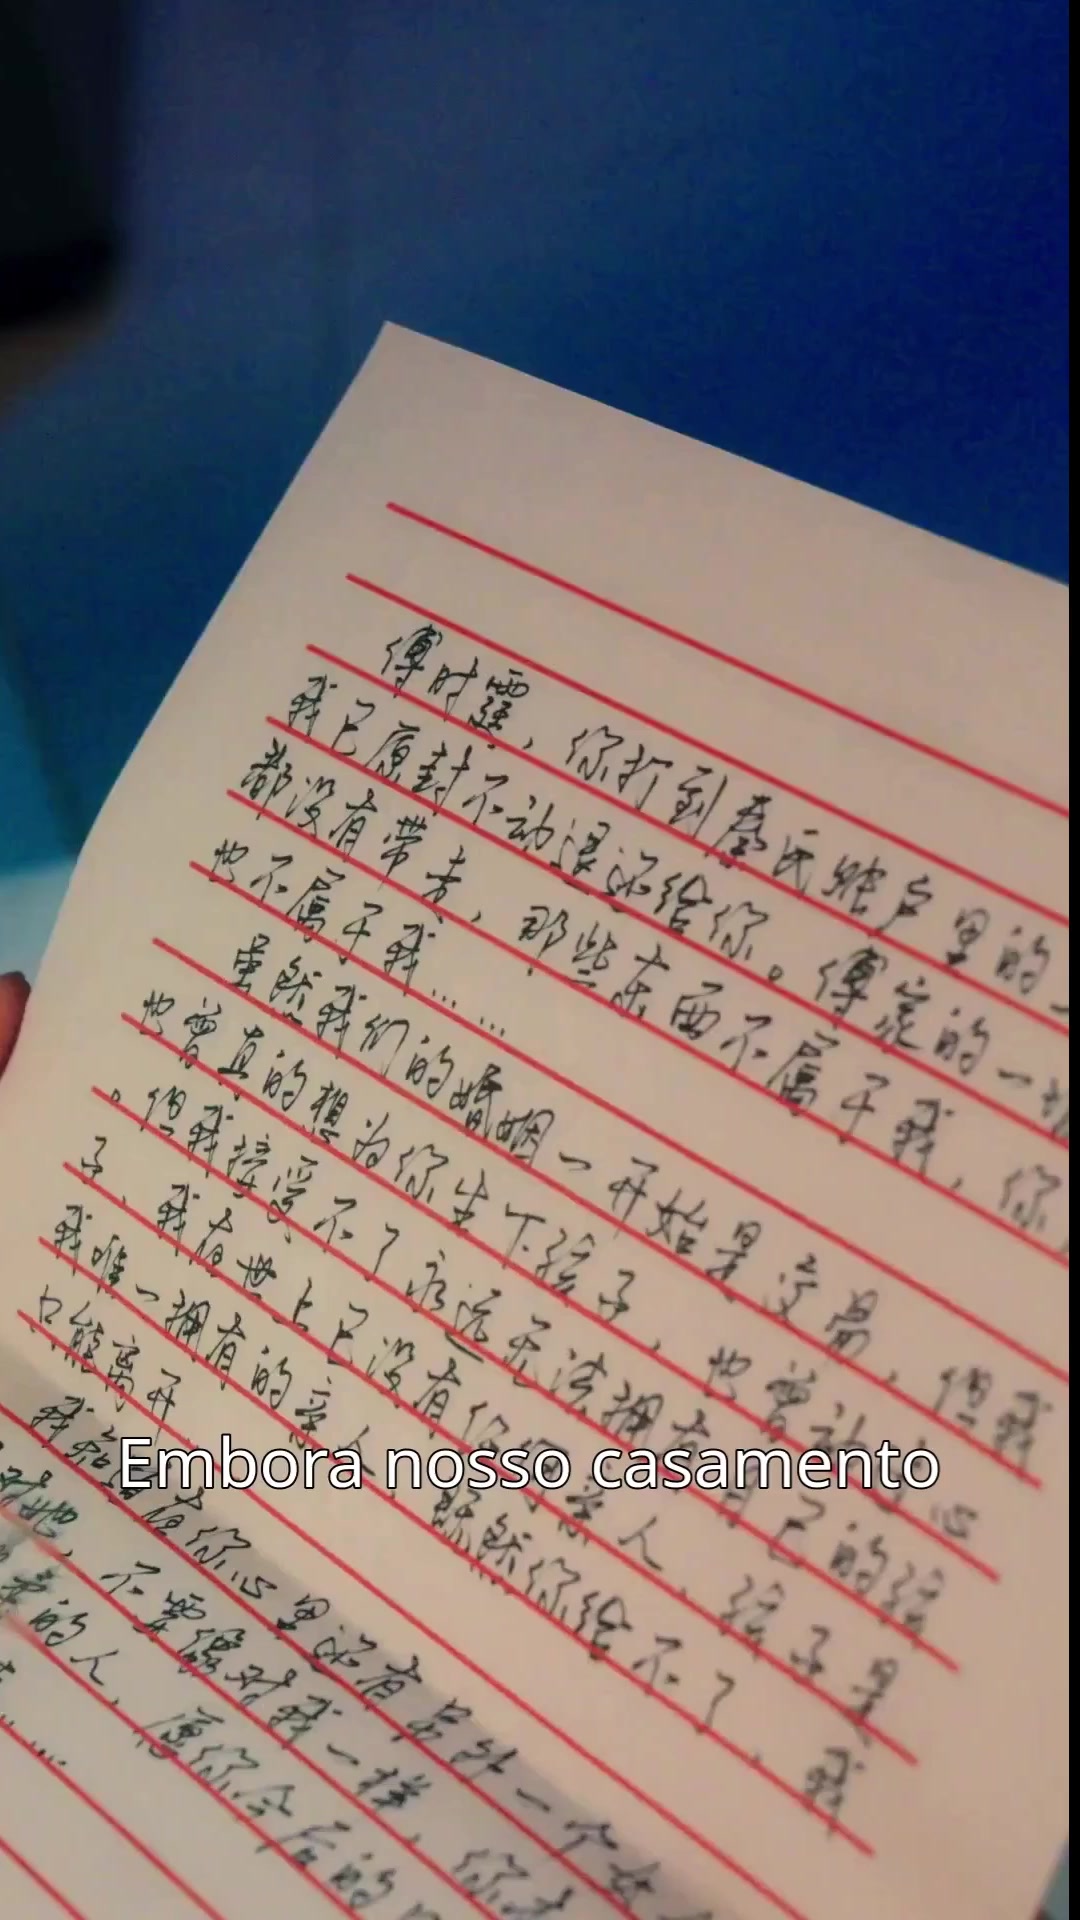 傅时霆，你打到秦氏账户里的
我已原封不动退还给你。傅家的一切
都没有带走，那些东西不属于我，你
也不属于我……
虽然我们的婚姻一开始是交易，但我
也曾真的想为你生下孩子，也曾动过心
。但我接受不了永远无法拥有自己的孩
子，我在世上已没有任何亲人，孩子是
我唯一拥有的亲人，既然你给不了，我
只能离开
我知道在你心里还有另外一个女
对她，不要像对我一样，你
爱的人，愿你今后的
……
Embora nosso casamento